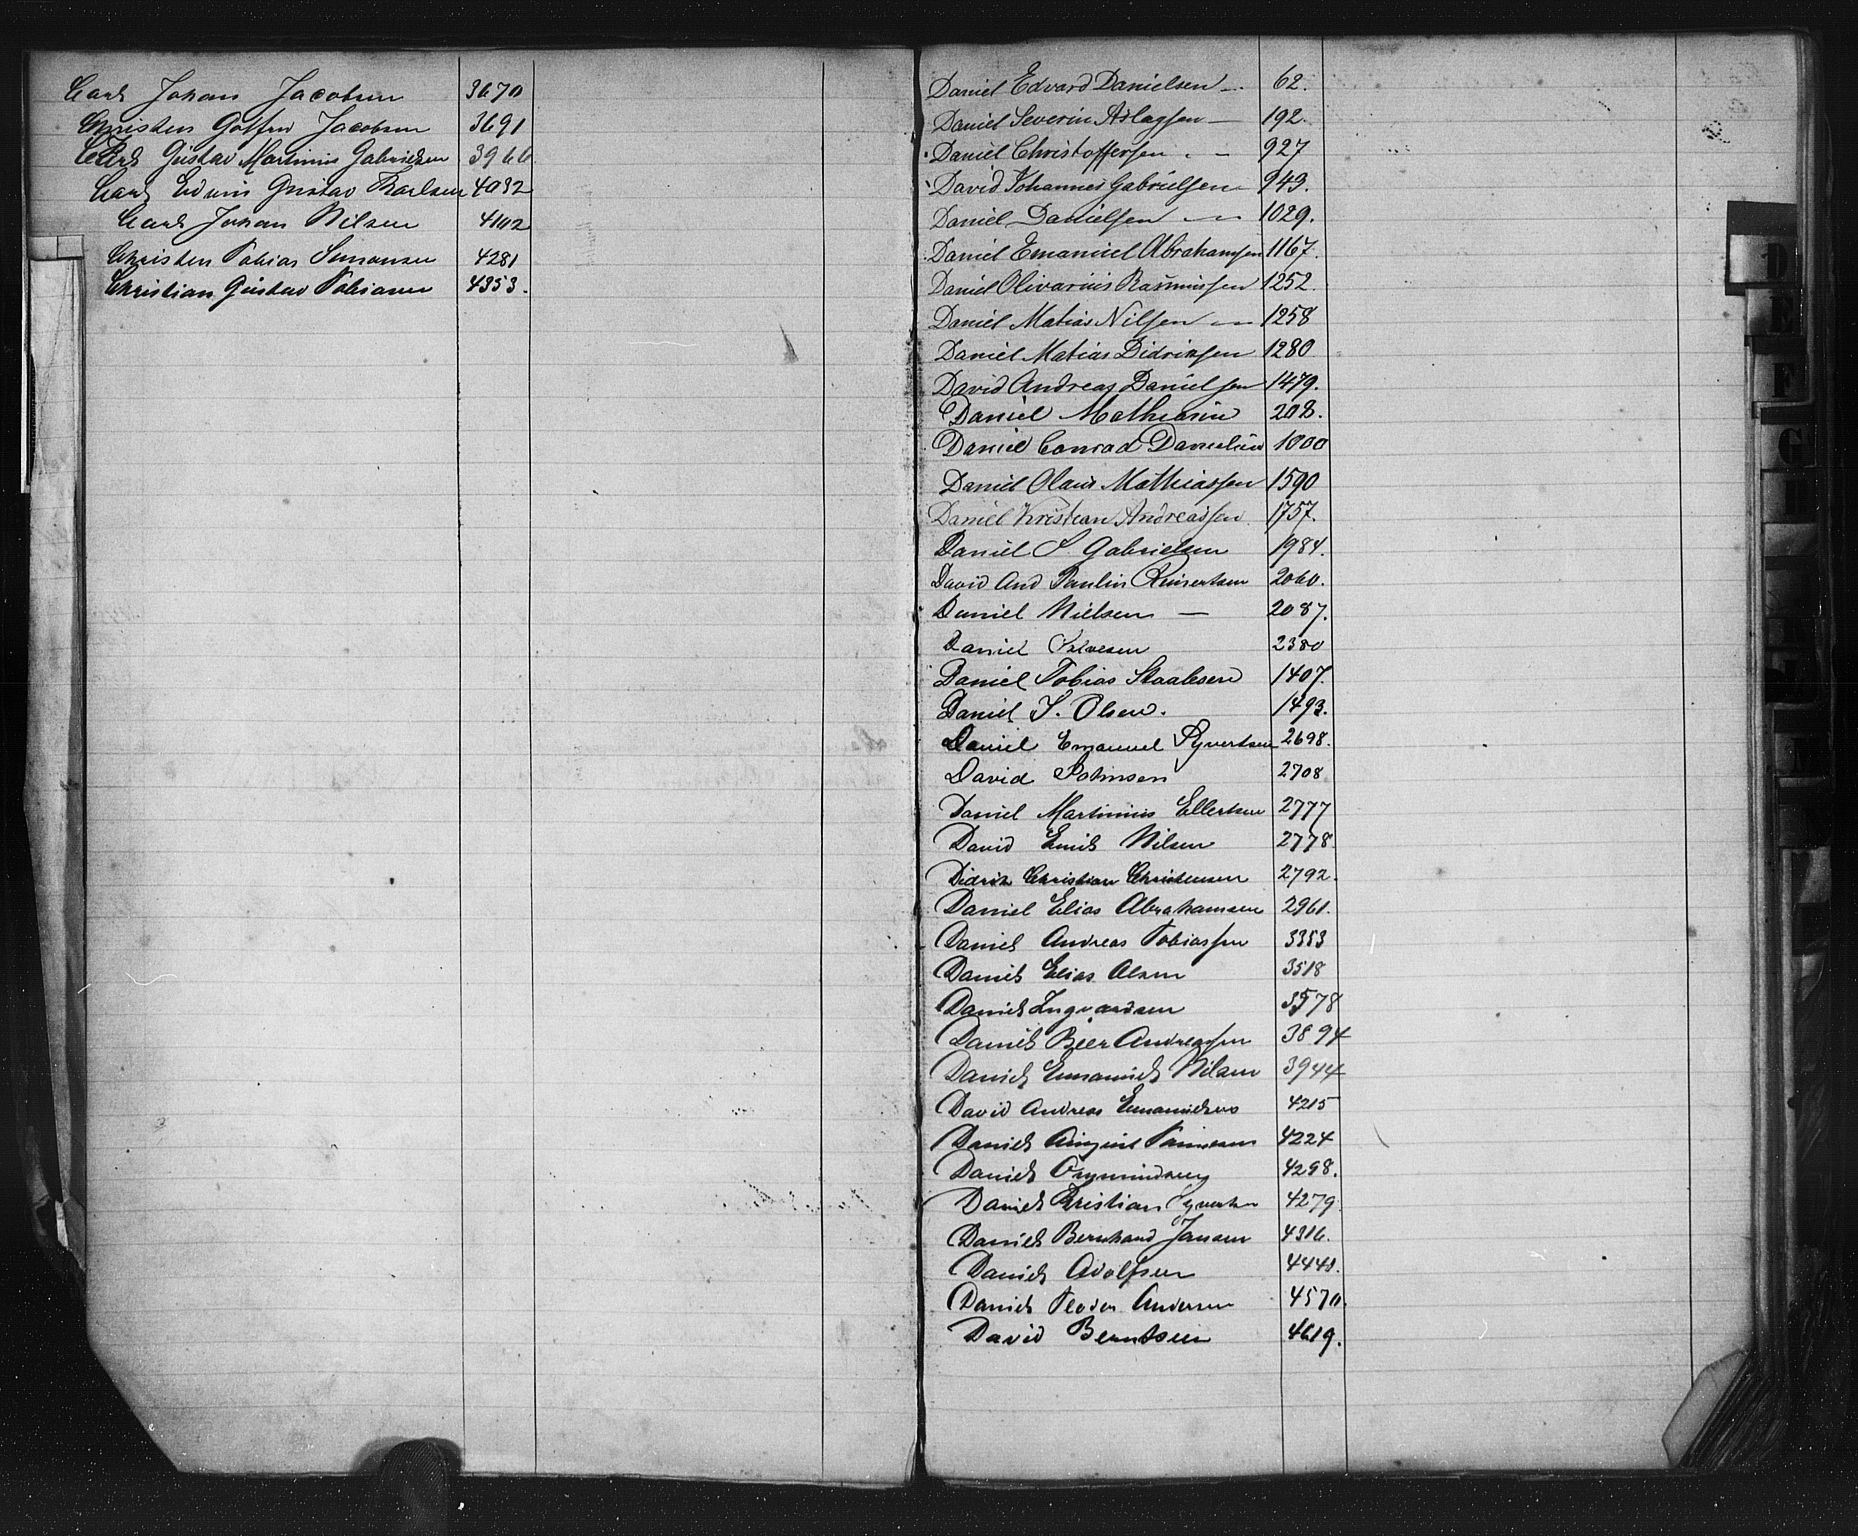 Carl Johan Jacobsen 3670
Christen Gotfred Jacobsen 3691
Carl Gustav Martinius Gabrielsen 3966
Carl Edvin Gustav Karlsen 4032
Carl Johan Nilsen 4102
Christen Tobias Simonsen 4281
Christian Gustav Tobiasen 4353.
Daniel Edvard Danielsen 62.
Daniel Severin Aslagsen — 192.
Daniel Christoffersen 927
David Johannes Gabrielsen 943.
Daniel Danielsen 1029.
Daniel Emanuel Abrahamsen 1167.
Daniel Olivarius Rasmussen 1252.
Daniel Matias Nilsen 1258
Daniel Matias Didriksen 1280
David Andreas Danielsen 1479.
Daniel Mathiesen 208.
Daniel Conrad Danielsen 1000
Daniel Olaus Mathiassen 1590
Daniel Kristian Andreassen 1757.
Daniel S. Gabrielsen 1984.
David And Paulin Reinertsen 2060.
Daniel Nielsen — 2087.
Daniel Salvesen 2380
Daniel Tobias Staalesen 1407.
Daniel T. Olsen. 1493.
Daniel Emanuel Syvertsen 2698.
David Johnsen 2708
Daniel Martinius Ellertsen 2777
David Emil Nilsen 2778
Didrik Christian Christensen 2792.
Daniel Elias Abrahamsen 2961.
Daniel Andreas Tobiassen 3353
Daniel Elias Olsen 3518
Daniel Ingvardsen 3578
Daniel Beer Andreassen 3894
Daniel Emanuel Nilsen 3944
David Andreas Emanuelsen 4215
Daniel August Tønnesen 4224
Daniel Osmundsen 4298.
Daniel Kristian Syvertsen 4279
Daniel Bernhard Jansen 4316.
Daniel Adolfsen 4441.
Daniel Teodor Andersen 4570.
David Berntsen 4619.
D
E
F
G